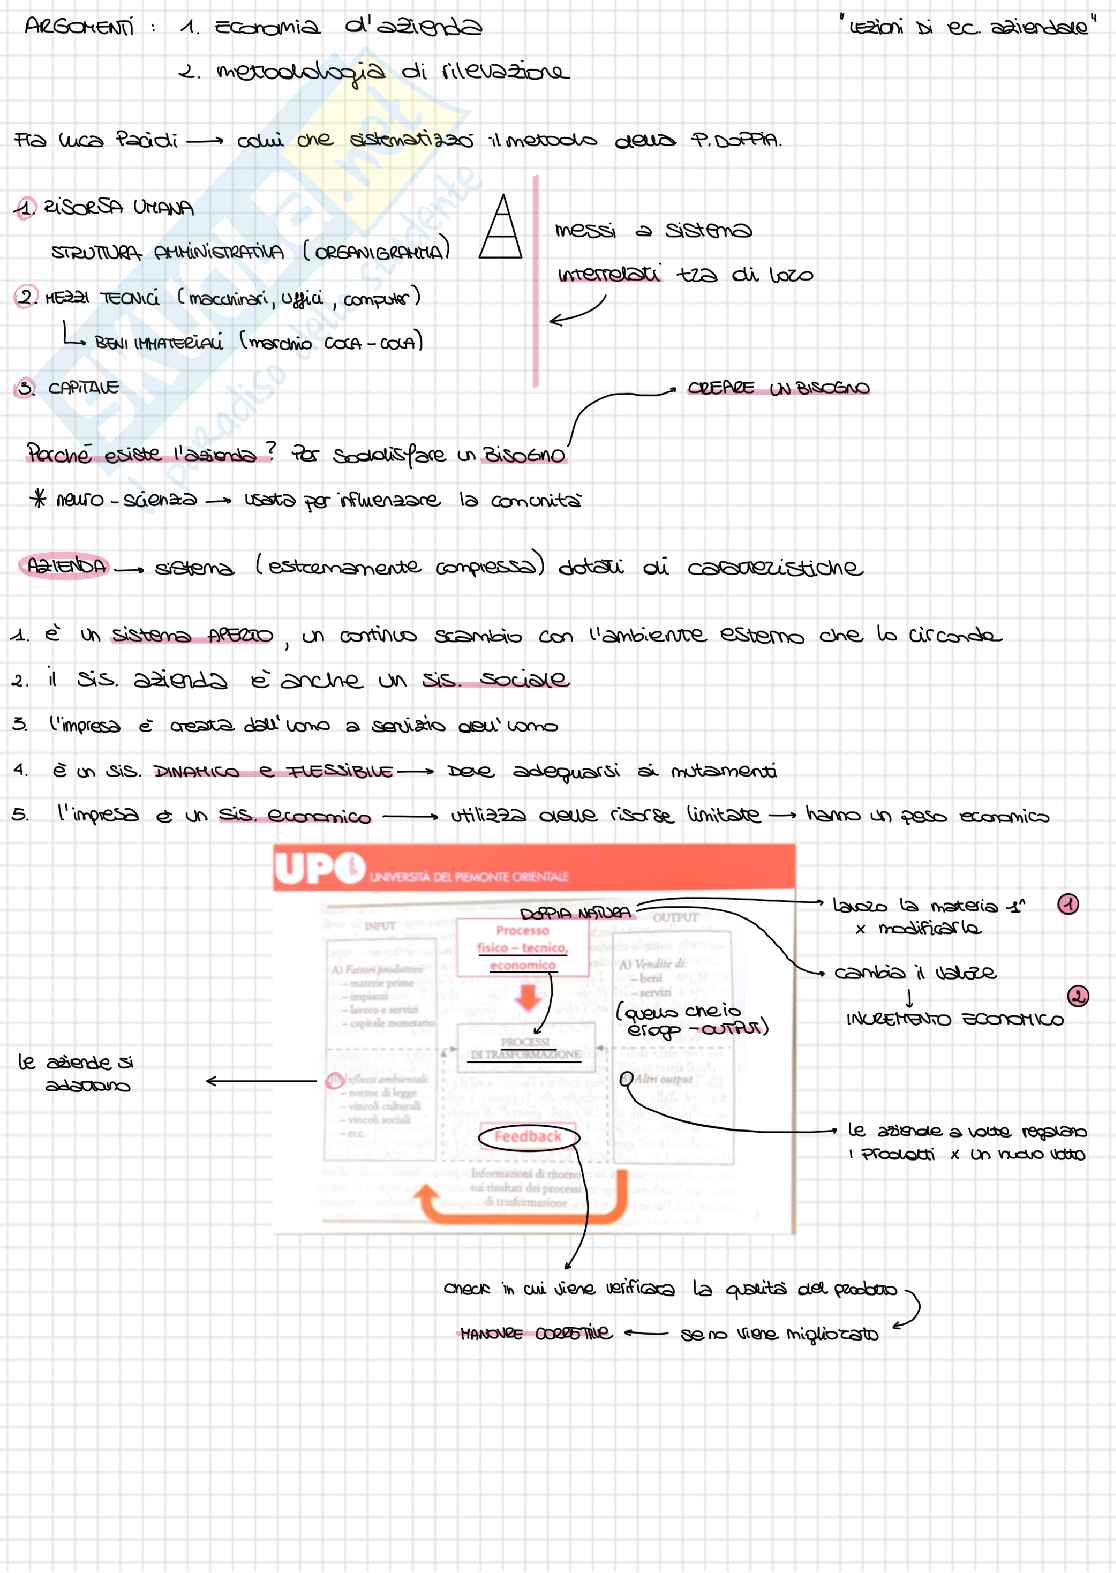 ARGOMENTI : 1. Economia d'azienda
"Lezioni Di ec. aziendale"
2. metodologia di rilevazione
Fra Luca Pacioli → colui che sistematizzò il metodo della P. DOPPIA.
1. RISORSA UMANA
STRUTTURA AMMINISTRATIVA (ORGANIGRAMMA)
2. MEZZI TECNICI (macchinari, uffici, computer)
BENI IMMATERIALI (marchio COCA-COLA)
3. CAPITALE
messi a sistema
interrelati tra di loro
CREARE UN BISOGNO
Perché esiste l'azienda? Per soddisfare un BISOGNO
* neuro-scienza → usata per influenzare la comunità
AZIENDA → sistema (estremamente compressa) dotati di caratteristiche
1. è un sistema APERTO, un continuo scambio con l'ambiente esterno che lo circonda
2. il sis. azienda è anche un sis. sociale
3. l'impresa è creata dall'uomo a servizio dell'uomo
4. è un sis. DINAMICO e FLESSIBILE → Deve adeguarsi ai mutamenti
5. l'impresa è un sis. economico → utilizza delle risorse limitate → hanno un peso economico
UPO UNIVERSITÀ DEL PIEMONTE ORIENTALE
DOPPIA NATURA
INPUT
OUTPUT
Processo
fisico – tecnico,
economico
A) Fattori produttivi
– materie prime
– impianti
– lavoro e servizi
– capitale monetario
A) Vendite di:
– beni
– servizi
(quello che io
erogo - OUTPUT)
PROCESSI
DI TRASFORMAZIONE
Influssi ambientali
– norme di legge
– vincoli culturali
– vincoli sociali
– ecc.
Altri output
Feedback
Informazioni di ritorno
sui risultati dei processi
di trasformazione
lavoro la materia 1ª
x modificarla
1
cambia il valore
INCREMENTO ECONOMICO
2
le aziende si
adattano
le aziende a volte regalano
i prodotti x un nuovo
check in cui viene verificata la qualità del prodotto
se no viene migliorato
MANOVRE CORRETTIVE
SKUOLA.net
il paradiso dello studente